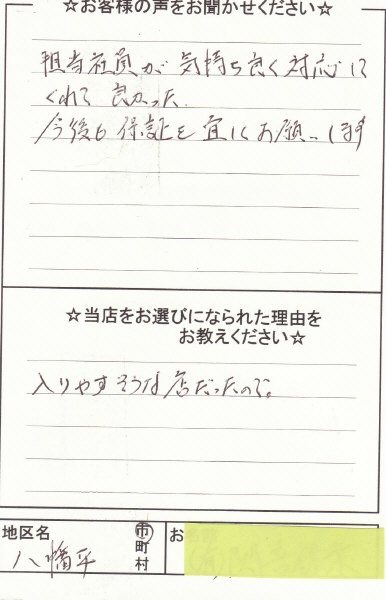 ☆お客様の声をお聞かせください☆
担当社員が気持ち良く対応して
くれて良かった
今後も保証を宜しくお願いします
☆当店をお選びになられた理由を
お教えください☆
入りやすそうな店だったので。
地区名
八幡平
市
町
村
お